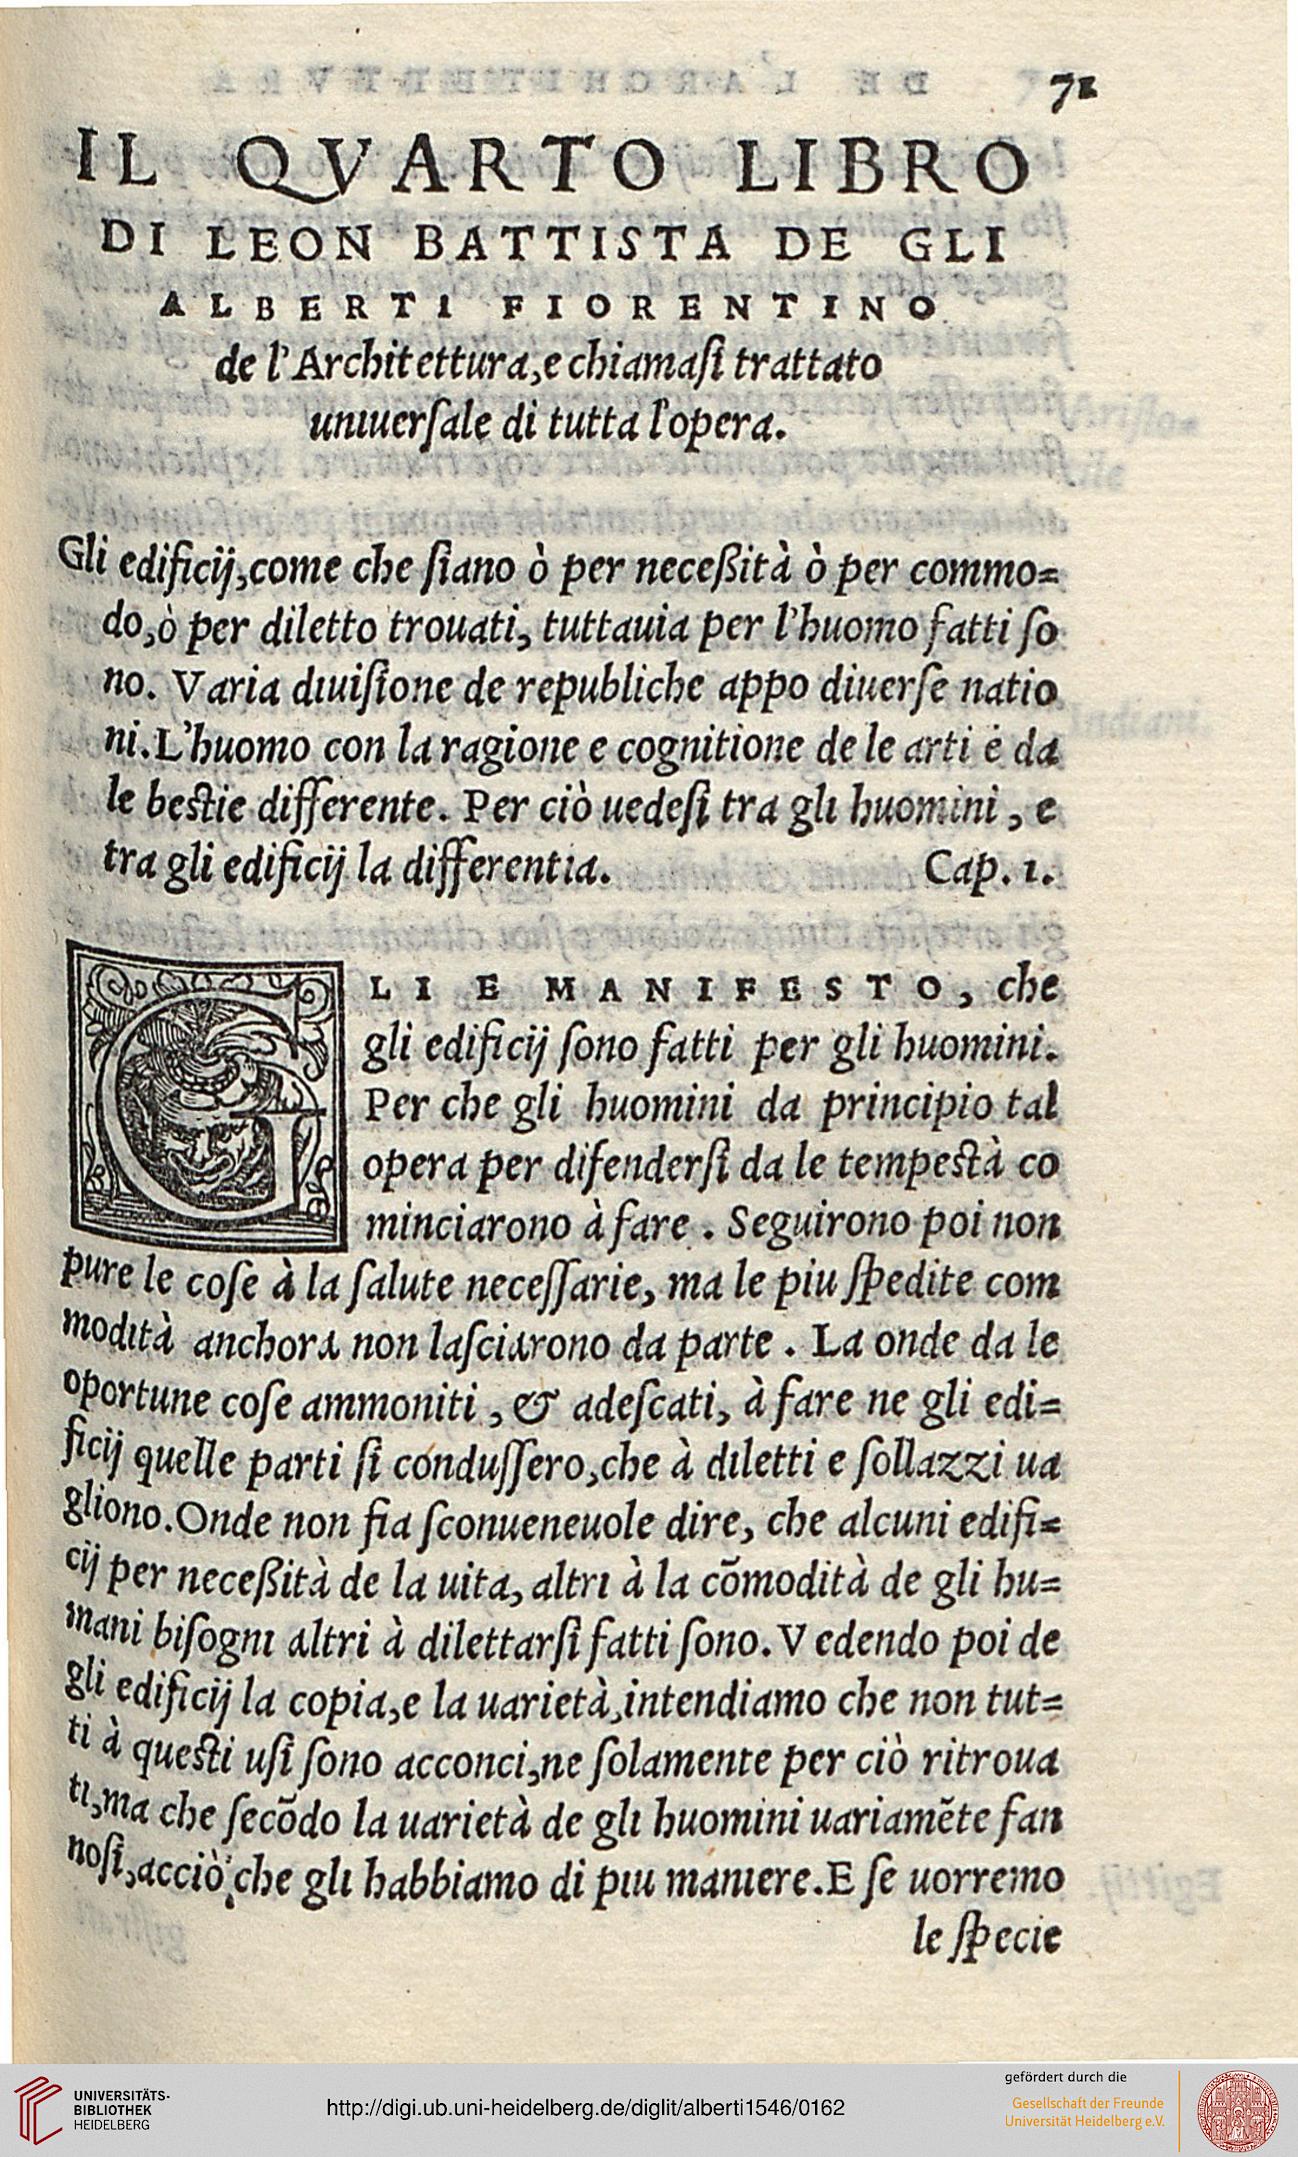 71
IL QVARTO LIBRO
DI LEON BATTISTA DE GLI
ALBERTI FIORENTINO
de l'Architettura,e chiamaſi trattato
uniuerſale di tutta l'opera.
Gli edificij,come che ſiano ò per neceßità ò per commo=
do,ò per diletto trouati, tuttauia per l'huomo fatti ſo
no. Varia diuiſione de republiche appo diuerſe natio
ni.L'huomo con la ragione e cognitione de le arti è da
le bestie differente. Per ciò uedeſi tra gli huomini , e
tra gli edificij la differentia. Cap. 1.
GLI E MANIFESTO, che
gli edificij ſono fatti per gli huomini.
Per che gli huomini da principio tal
opera per difenderſi da le tempestà co
minciarono à fare . Seguirono poi non
pure le coſe à la ſalute neceſſarie, ma le piu ſpedite com
modità anchora non laſciarono da parte . La onde da le
oportune coſe ammoniti , & adeſcati, à fare ne gli edi=
ficij quelle parti ſi conduſſero,che à diletti e ſollazzi ua
gliono.Onde non fia ſconueneuole dire, che alcuni edifi=
cij per neceßità de la uita, altri à la cõmodità de gli hu=
mani biſogni altri à dilettarſi fatti ſono.Vedendo poi de
gli edificij la copia,e la uarietà,intendiamo che non tut=
ti à questi uſi ſono acconci,ne ſolamente per ciò ritroua
ti,ma che ſecõdo la uarietà de gli huomini uariamẽte fan
noſi,acciò che gli habbiamo di piu maniere.E ſe uorremo
le ſpecie
UNIVERSITÄTS-
BIBLIOTHEK
HEIDELBERG
http://digi.ub.uni-heidelberg.de/diglit/alberti1546/0162
gefördert durch die
Gesellschaft der Freunde
Universität Heidelberg e.V.